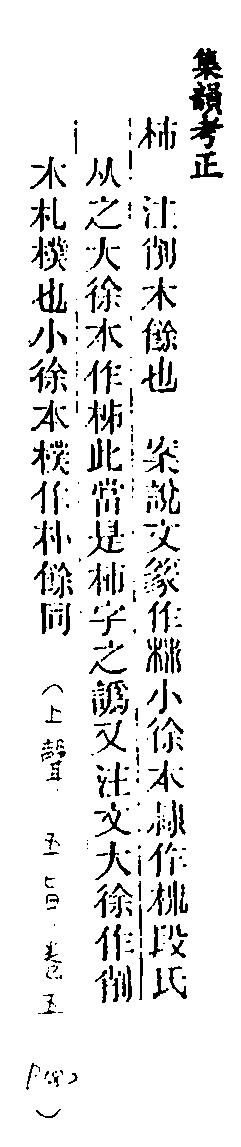 集韻考正
柿 注削木餘也 案說文篆作𣏕小徐本隷作𣏕段氏
从之大徐本作柹此當是柿字之譌又注文大徐作削
木札樸也小徐本樸作朴餘同
（上聲 五旨·卷五
）